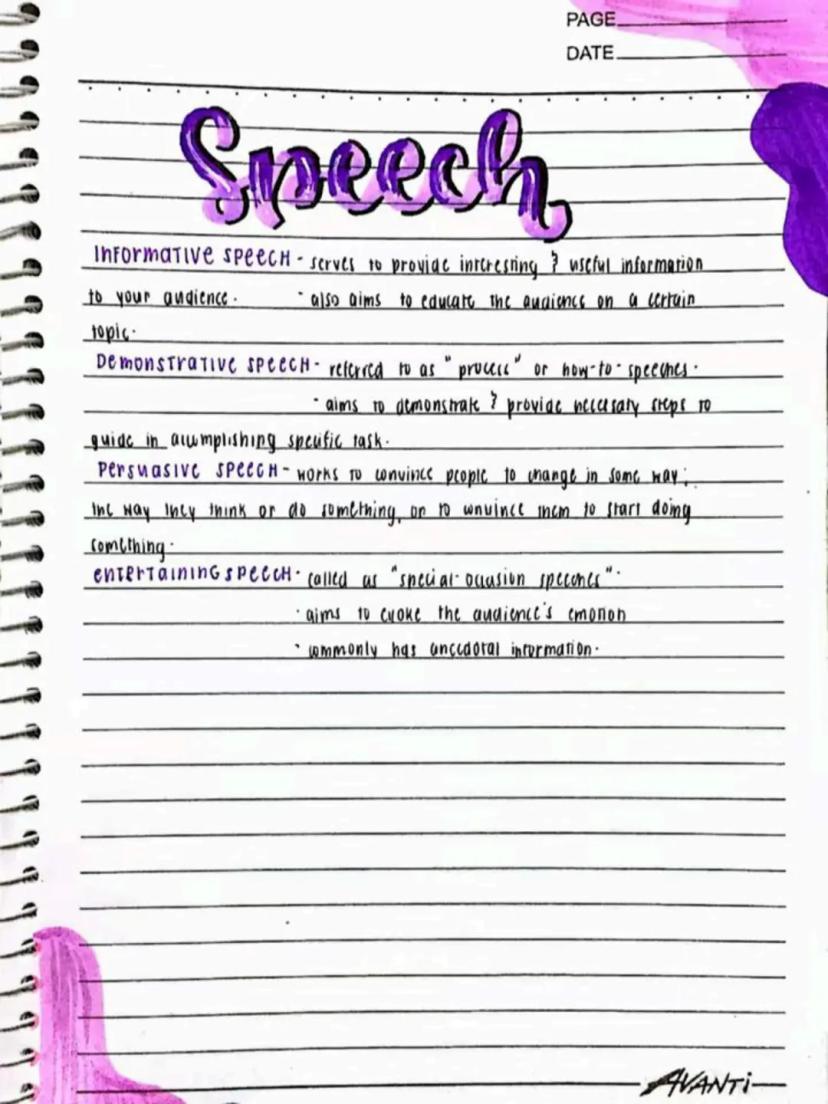 PAGE
DATE
Speech
INFORMATIVE SPEECH - serves to provide interesting & useful information
to your audience. - also aims to educate the audience on a certain
topic.
DEMONSTRATIVE SPEECH - referred to as "process" or how-to-speeches.
- aims to demonstrate & provide necessary steps to
guide in accomplishing specific task.
PERSUASIVE SPEECH - works to convince people to change in some way;
the way they think or do something, or to convince them to start doing
something.
ENTERTAINING SPEECH - called as "special-occasion speeches".
- aims to evoke the audience's emotion
- commonly has anecdotal information.
AVANTI